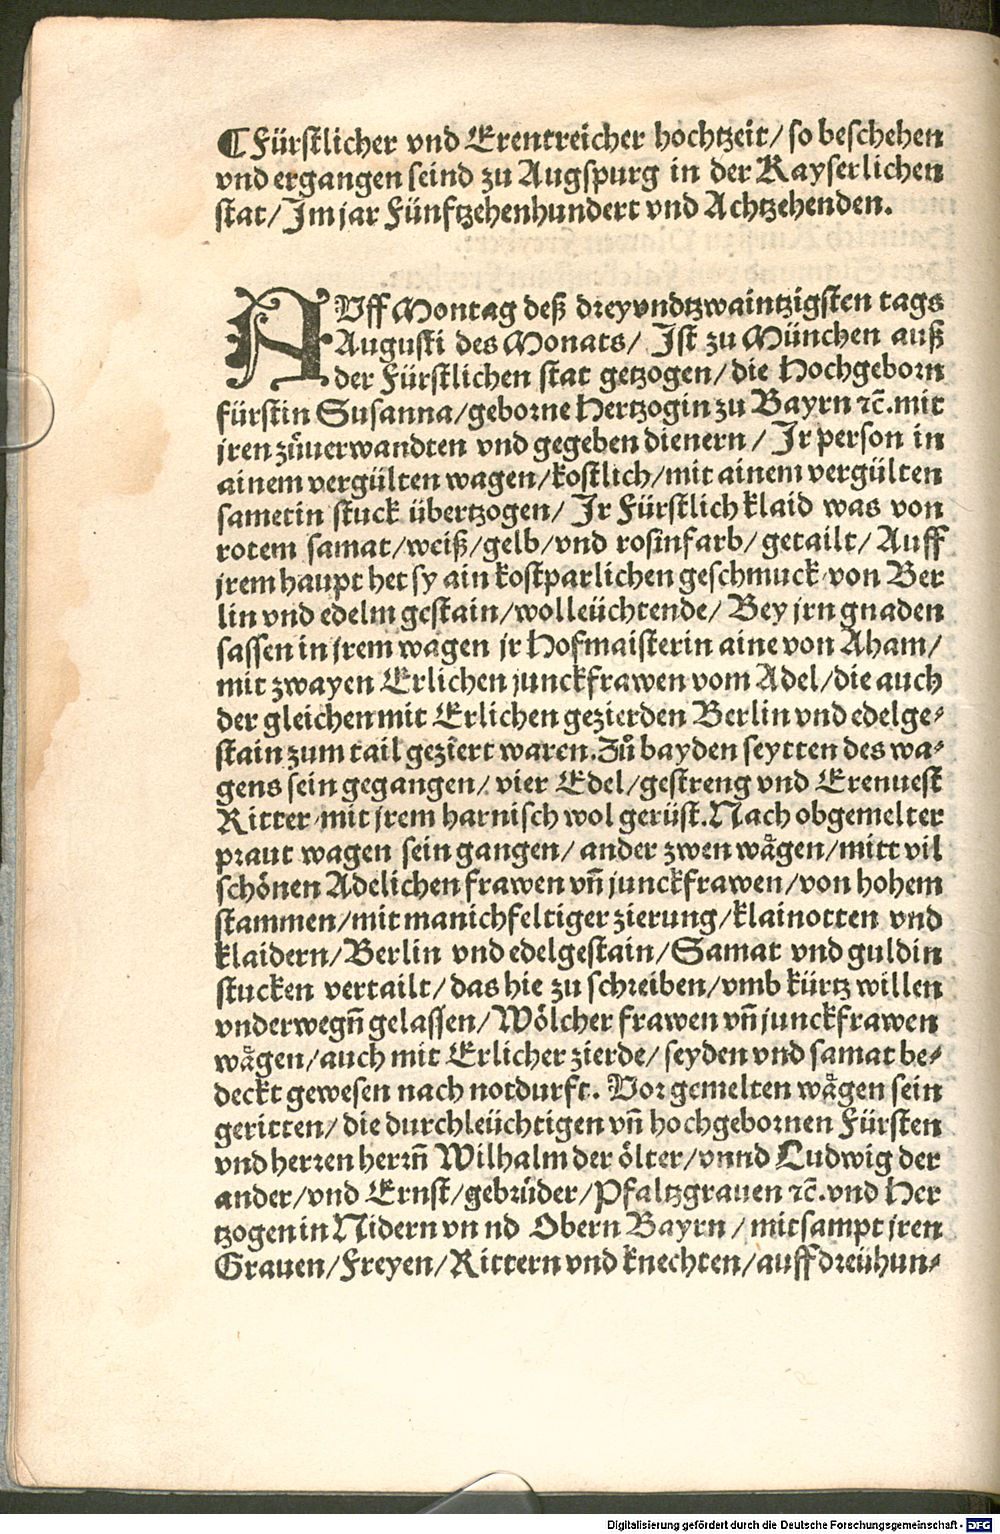 ¶ Fürstlicher vnd Erentreicher hochtzeit/ so beschehen
vnd ergangen seind zu Augspurg in der Kayserlichen
stat/ Im jar Fünftzehenhundert vnd Achtzehenden.
AVff Montag deß dreyvndtzwaintzigsten tags
Augusti des Monats/ Ist zu München auß
der Fürstlichen stat getzogen/ die Hochgeborn
fürstin Susanna/ geborne Hertzogin zu Bayrn ꝛc̄. mit
jren zůuerwandten vnd gegeben dienern/ Ir person in
ainem vergülten wagen/ kostlich/ mit ainem vergülten
sametin stuck übertzogen/ Ir Fürstlich klaid was von
rotem samat/ weiß/ gelb/ vnd rosinfarb/ getailt/ Auff
jrem haupt het sy ain kostparlichen geschmuck von Ber
lin vnd edelm gestain/ wolleüchtende/ Bey jrn gnaden
sassen in jrem wagen jr Hofmaisterin aine von Aham/
mit zwayen Erlichen junckfrawen vom Adel/ die auch
der gleichen mit Erlichen gezierden Berlin vnd edelge⸗
stain zum tail geziert waren. Zů bayden seytten des wa⸗
gens sein gegangen/ vier Edel/ gestreng vnd Erenuest
Ritter/ mit jrem harnisch wol gerüst. Nach obgemelter
praut wagen sein gangen/ ander zwen waͤgen/ mitt vil
schönen Adelichen frawen vn̄ junckfrawen/ von hohem
stammen/ mit manichfeltiger zierung/ klainotten vnd
klaidern/ Berlin vnd edelgestain/ Samat vnd guldin
stucken vertailt/ das hie zu schreiben/ vmb kürtz willen
vnderwegn̄ gelassen/ Wölcher frawen vn̄ junckfrawen
waͤgen/ auch mit Erlicher zierde/ seyden vnd samat be⸗
deckt gewesen nach notdurft. Vor gemelten waͤgen sein
geritten/ die durchleüchtigen vn̄ hochgebornen Fürsten
vnd herren herrn̄ Wilhalm der ölter/ vnnd Ludwig der
ander/ vnd Ernst/ gebrüder/ Pfaltzgrauen ꝛc̄. vnd Her
tzogen in Nidern vn nd Obern Bayrn/ mitsampt jren
Grauen/ Freyen/ Rittern vnd knechten/ auff dreühun⸗
Digitalisierung gefördert durch die Deutsche Forschungsgemeinschaft - DFG